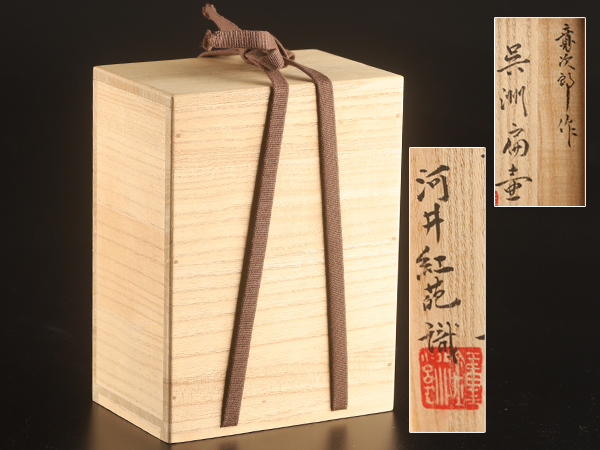 寛次郎作
呉洲扁壷
河井紅葩識